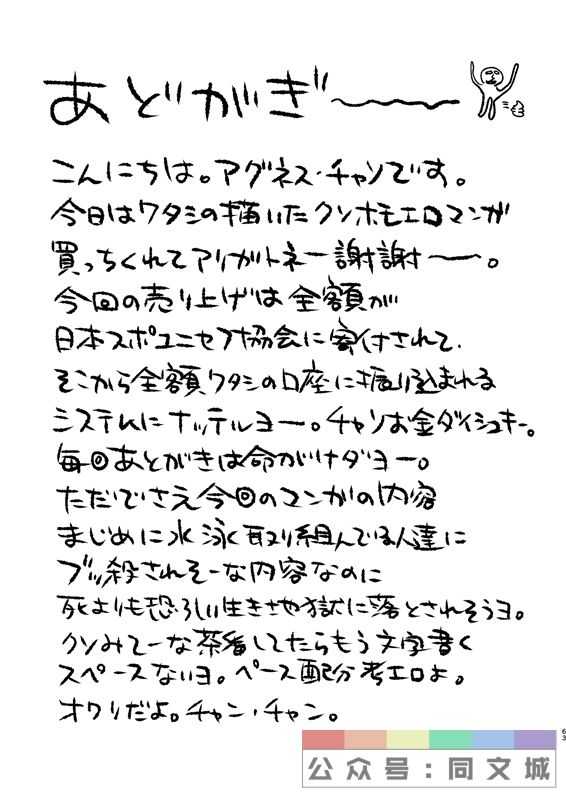 あどがぎ〜〜〜
こんにちは。アグネス・チャソです。
今日はワタシの描いたクソホモエロマンガ
買っちくれてアリガトネー謝謝〜。
今回の売り上げは全額が
日本スポユニセフ協会に寄付されて、
そこから全額ワタシの口座に振り込まれる
システムにナッテルヨー。チャソお金ダイシュキー。
毎回あとがきは命がけダヨー。
ただでさえ今回のマンガの内容
まじめに水泳く取り組んでいる人達に
ブッ殺されそーな内容なのに
死よりも恐ろしい生き地獄に落とされそうヨ。
クソみてーな茶番してたらもう文字書く
スペースないヨ。ペース配分考エロよ。
オワリだよ。チャン・チャン。
63
公众号:同文城